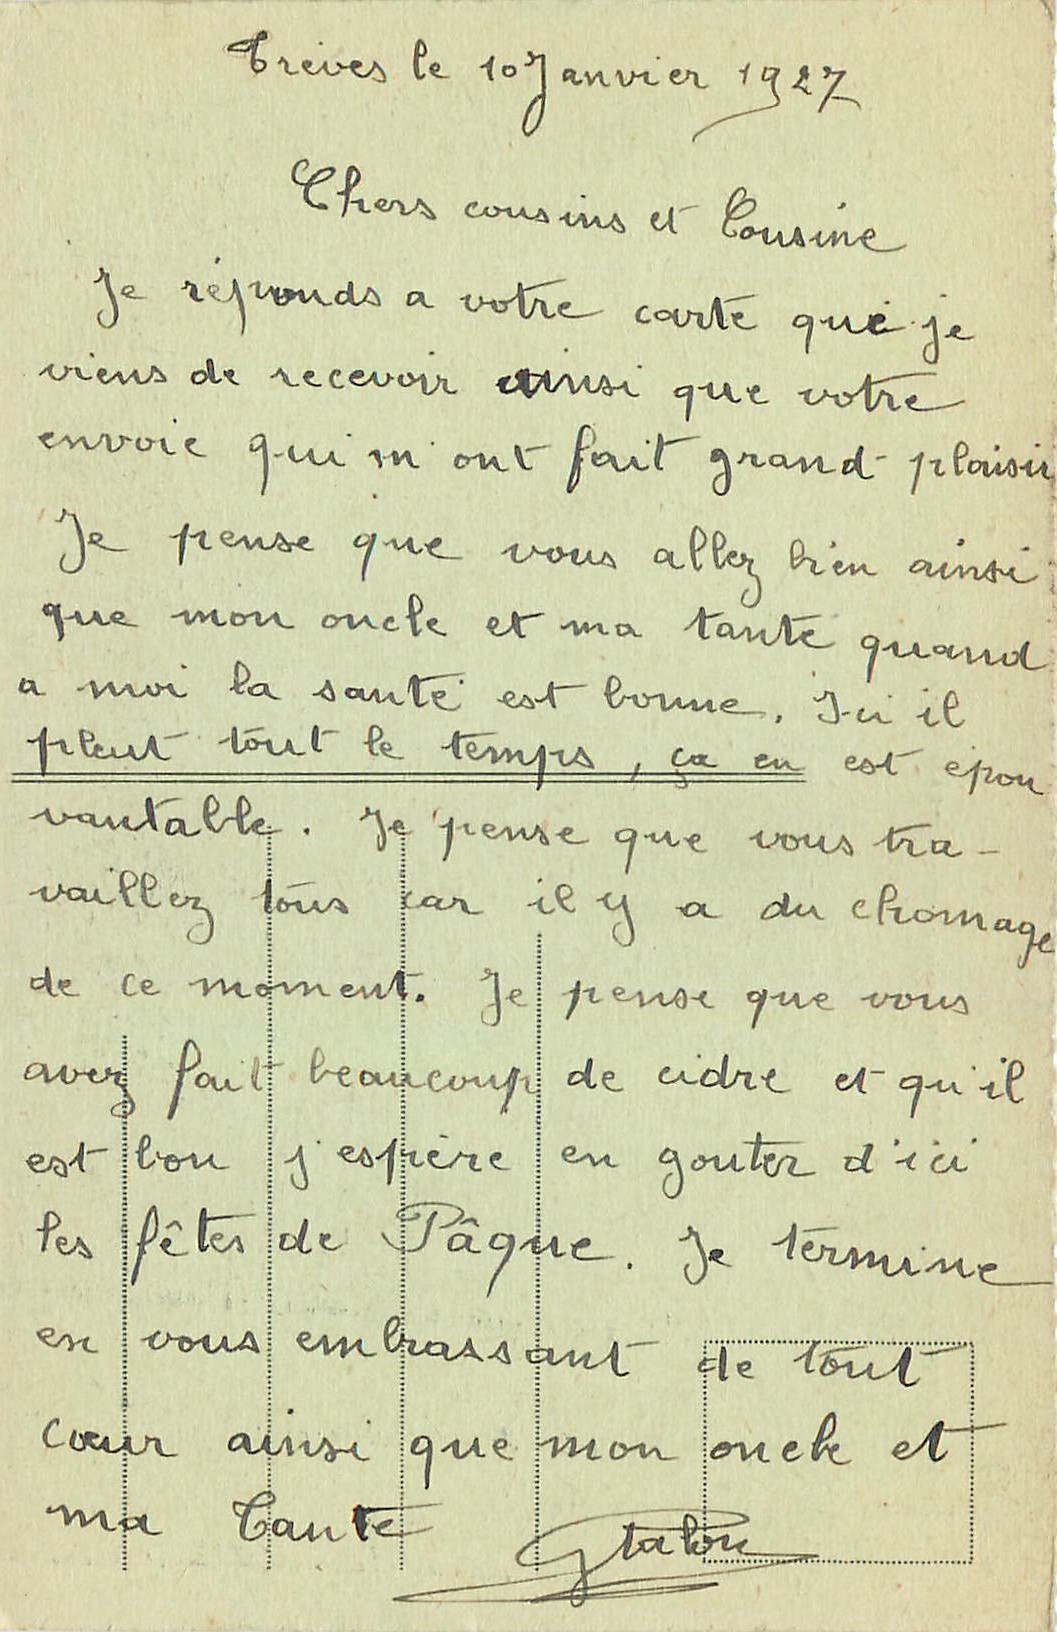 Trèves le 10 Janvier 1927
Chers cousins et Cousine
Je réponds a votre carte que je
viens de recevoir ainsi que votre
envoie qui m'ont fait grand plaisir
Je pense que vous allez bien ainsi
que mon oncle et ma tante quand
a moi la santé est bonne. Ici il
pleut tout le temps, ça en est epou
vantable. Je pense que vous tra-
vaillez tous car il y a du chomage
de ce moment. Je pense que vous
avez fait beaucoup de cidre et qu'il
est bon j'espère en gouter d'ici
les fêtes de Pâque. Je termine
en vous embrassant de tout
cœur ainsi que mon oncle et
ma Tante